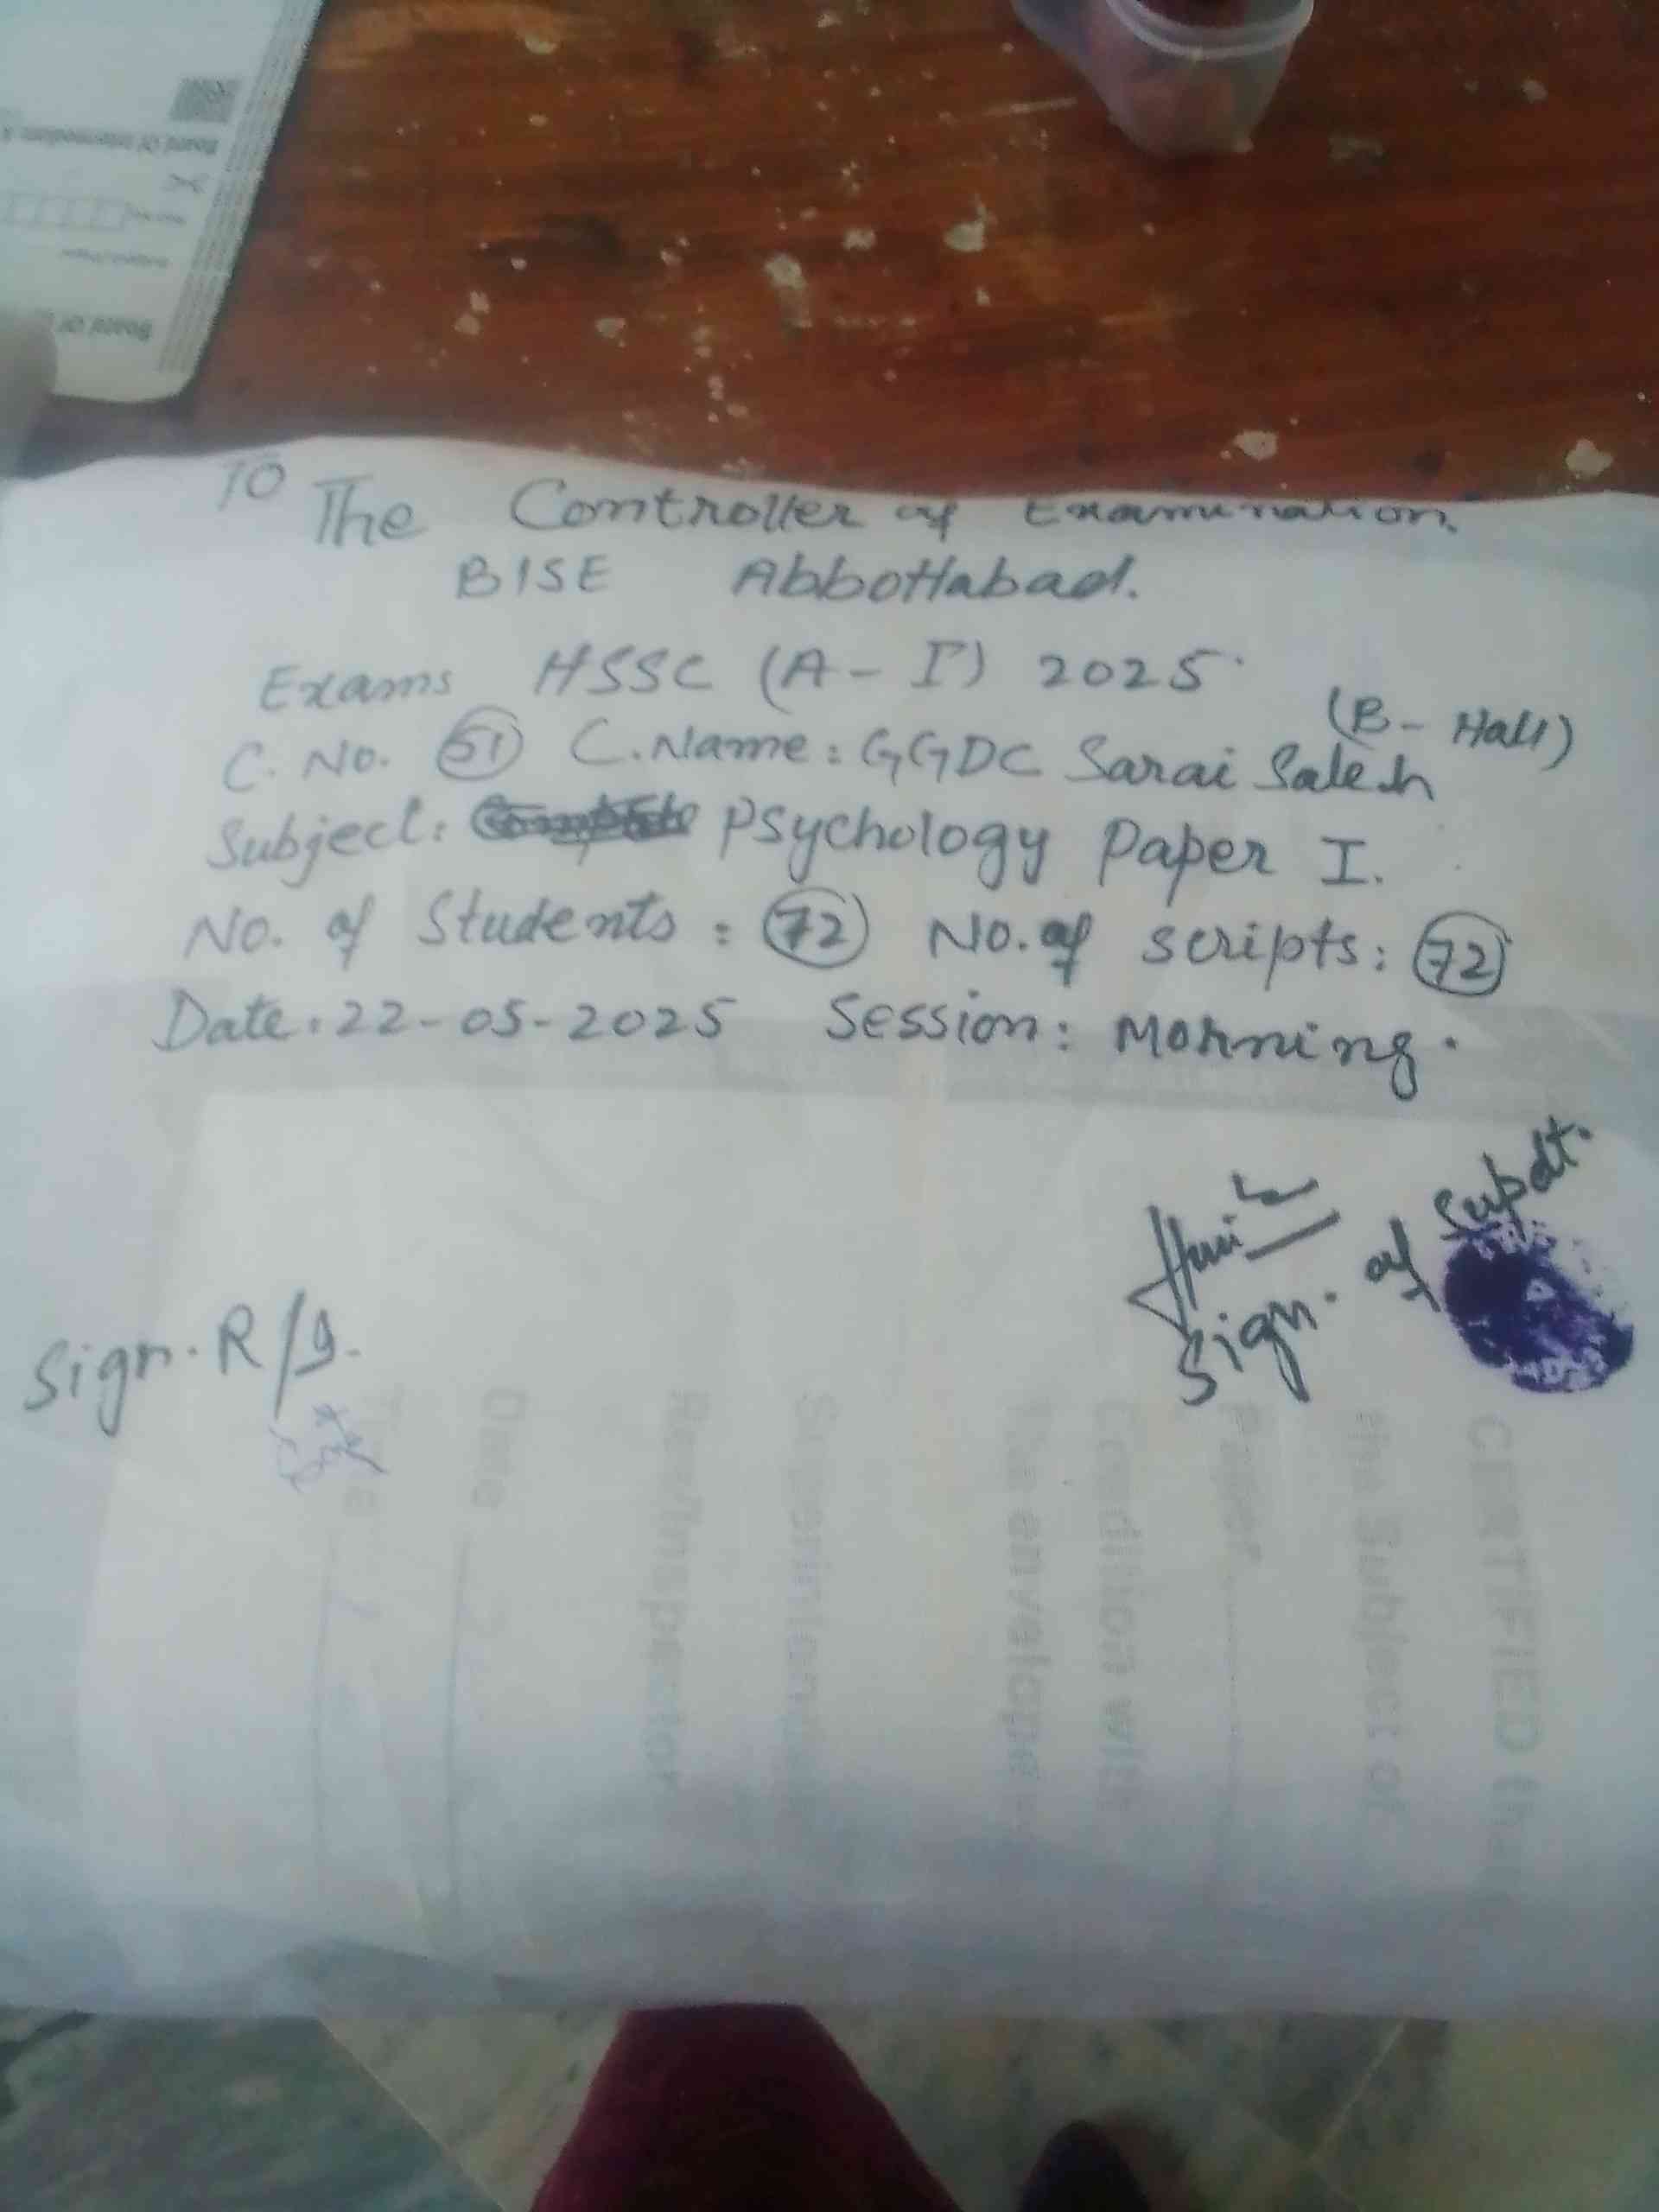 Board Of Intermediate &
Board Of
To
The Controller of Examination.
BISE Abbottabad.
Exams HSSC (A-I) 2025
(B-Hall)
C. No. 51 C.Name: GGDC Sarai Saleh
Subject: Psychology Paper I.
No. of Students: 72 No. of scripts: 72
Date: 22-05-2025 Session: Morning.
Sign. of Supdt.
Sign. R/I.
CERTIFIED that
the Subject of
Paper
Condition with
The envelope
Superinten
Res/Inspector
Date
Time